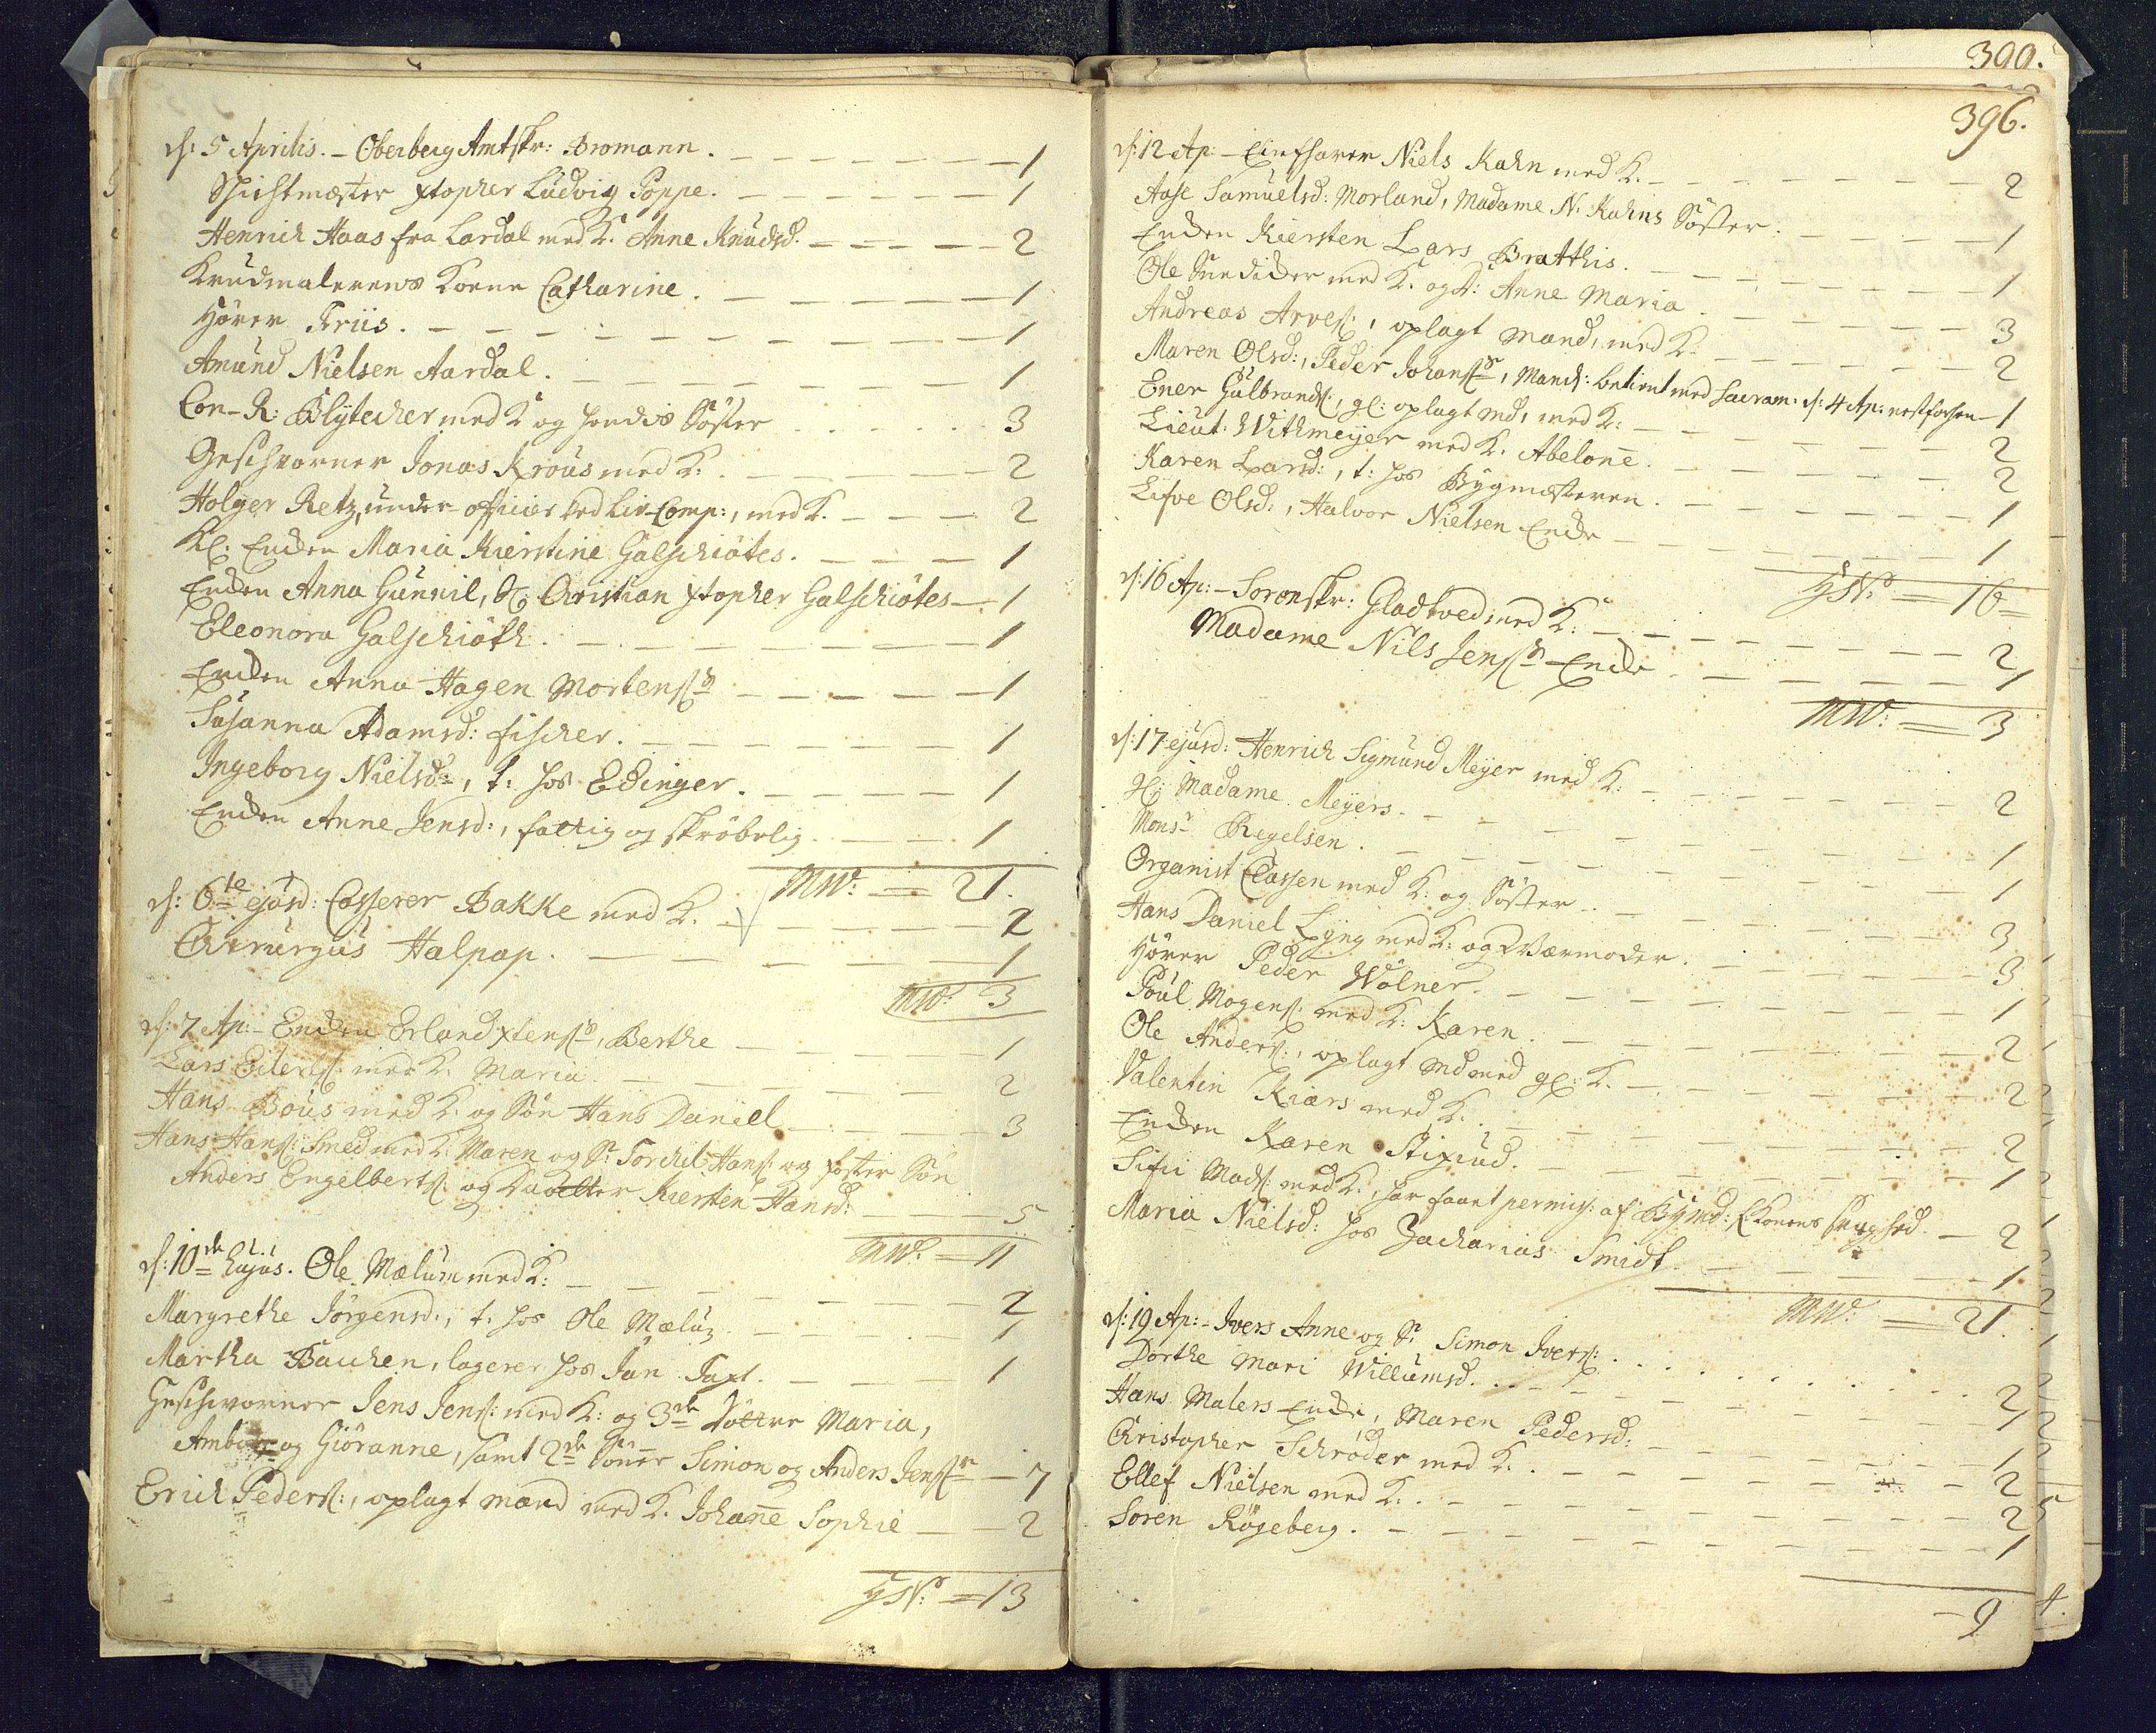 d: 5 Aprilis. - Oberberg Amtskr: Bromann. 1
Schichtmæster Xtopher Ludvig Poppe. 1
Henrich Haas fra Lardal med K. Anne Knudsd. 2
Krudmalerens Kone Catharine. 1
Hörer Friis. 1
Amund Nielsen Aardal. 1
Con-R: Blytecher med K og hendis Söster 3
Geschworner Jonas Krous med K: 2
Holger Retz, under-officier ved Liv-Comp:, med K. 2
Enchen Maria Kierstine Galschiötes. 1
Enchen Anna Gunnil, Christian Xtopher Galschiötes 1
Eleonora Galschiöth. 1
Enchen Anna Hagen Mortens 1
Susanna Adamsd: Fischer. 1
Ingeborg Nielsd:, t: hos Edinger. 1
Enchen Anne Jensd:, fattig og skröbelig 1
= 21.
d: 6te ejusd: Casserer Bakke med K. 2
Chirurgus Halpap. 1
3
d: 7 Ap: - Enchen Erland Xtens, Berthe 1
Lars Eilers: med K. Maria. 2
Hans Bous med K. og Sön Hans Daniel 3
Hans Hans: Smed med K. Maren og S: Torchel Hans: og foster Sön
Anders Engelberts: og Daatter Kiersten Hansd: 5
= 11
d: 10de hujus. Ole Mælum med K: 2
Margrethe Jörgensd:, t. hos Ole Mælum 1
Martha Bauchen, logerer hos Jan 1
Geschworner Jens Jens: med K: og 3de Döttre Maria,
og Giöranne, samt 2de Sönner Simon og Anders Jens 7
Erich Peders:, oplagt mand med K. Johanne Sophie 2
= 13
390.
396.
d: 12 Ap: - Einfharer Niels Kahn med K. 2
Aase Samuelsd: Morland, Madame N. Kahns Söster. 1
Enchen Kiersten Lars Bratthis. 1
Ole med K. og D: Anne Maria 3
Andreas Arves:, oplagt mand, med K. 2
Maren Olsd:, Peder Johans, Mand: betient med Sacram: d: 4 Ap: nestforhen 1
Ener Gulbrands:, gl: oplagt md, med K: 2
Lieut: Withmeyer med K. Abelone. 2
Karen Larsd:, t: hos Bygmesteren. 1
Live Olsd:, Halvor Nielsen Enche 1
= 16 =
d: 16 Ap: - Sorenskr: Gladtved med K: 2
Madame Nils Jens Enche 1
= 3
d: 17 ejusd: Henrich Sigmund Meyer med K: 2
gl: Madame Meyers. 1
Monsr Regelsen. 1
Organist Classen med K: og Söster 3
Hans Daniel Lyng med K: og Værmoder. 3
Hörer Peder Wölner. 1
Poul Mogens: med K: Karen. 2
Ole Anders:, oplagt md med gl: K. 2
Valentin Kiærs med K. 2
Enchen Karen Stixrud. 1
Sifu Mads: med K:, har faaet permiss: af Bymd: Konens svaghed 2
Maria Nielsd: hos Zacharias Smidt 1
= 21.
d: 19 Ap: - Ivers Anne og S: Simon Ivers: 2
Dorthe Mari Willumsd. 1
Hans Malers Enche, Maren Pedersd: 1
Christopher Schröder med K. 2
Ellef Nielsen med K. 2
Sören Rögeberg. 1
- 9